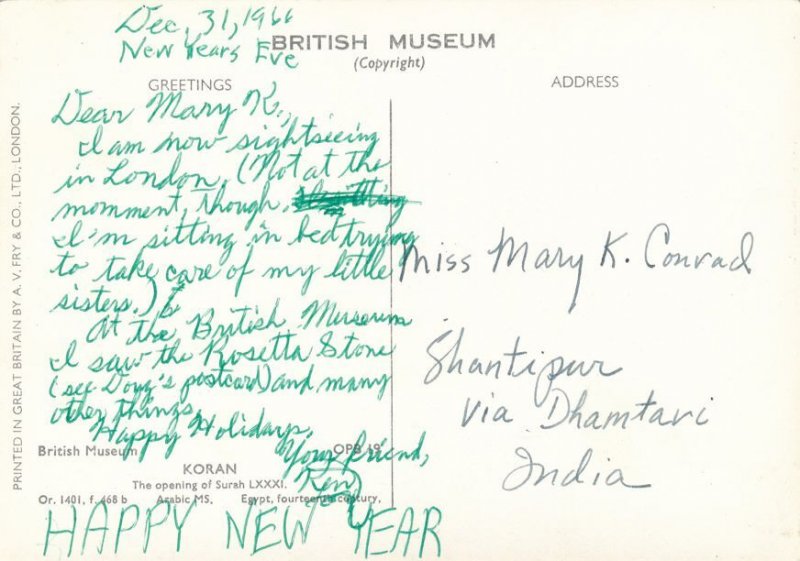 Dec. 31, 1966
New Years Eve
BRITISH MUSEUM
(Copyright)
GREETINGS
Dear Mary K.,
I am now sightseeing
in London. (Not at the
momment, though.
I'm sitting in bed trying
to take care of my little
sisters.)
At the British Museum
I saw the Rosetta Stone
(see Doug's postcard) and many
other things.
Happy Holidays,
Your friend,
Ken
HAPPY NEW YEAR
British Museum
OPB 19
KORAN
The opening of Surah LXXXI.
Or. 1401, f. 468 b Arabic MS. Egypt, fourteenth century.
PRINTED IN GREAT BRITAIN BY A. V. FRY & CO., LTD., LONDON.
ADDRESS
Miss Mary K. Conrad
Shantipur
via Dhamtari
India